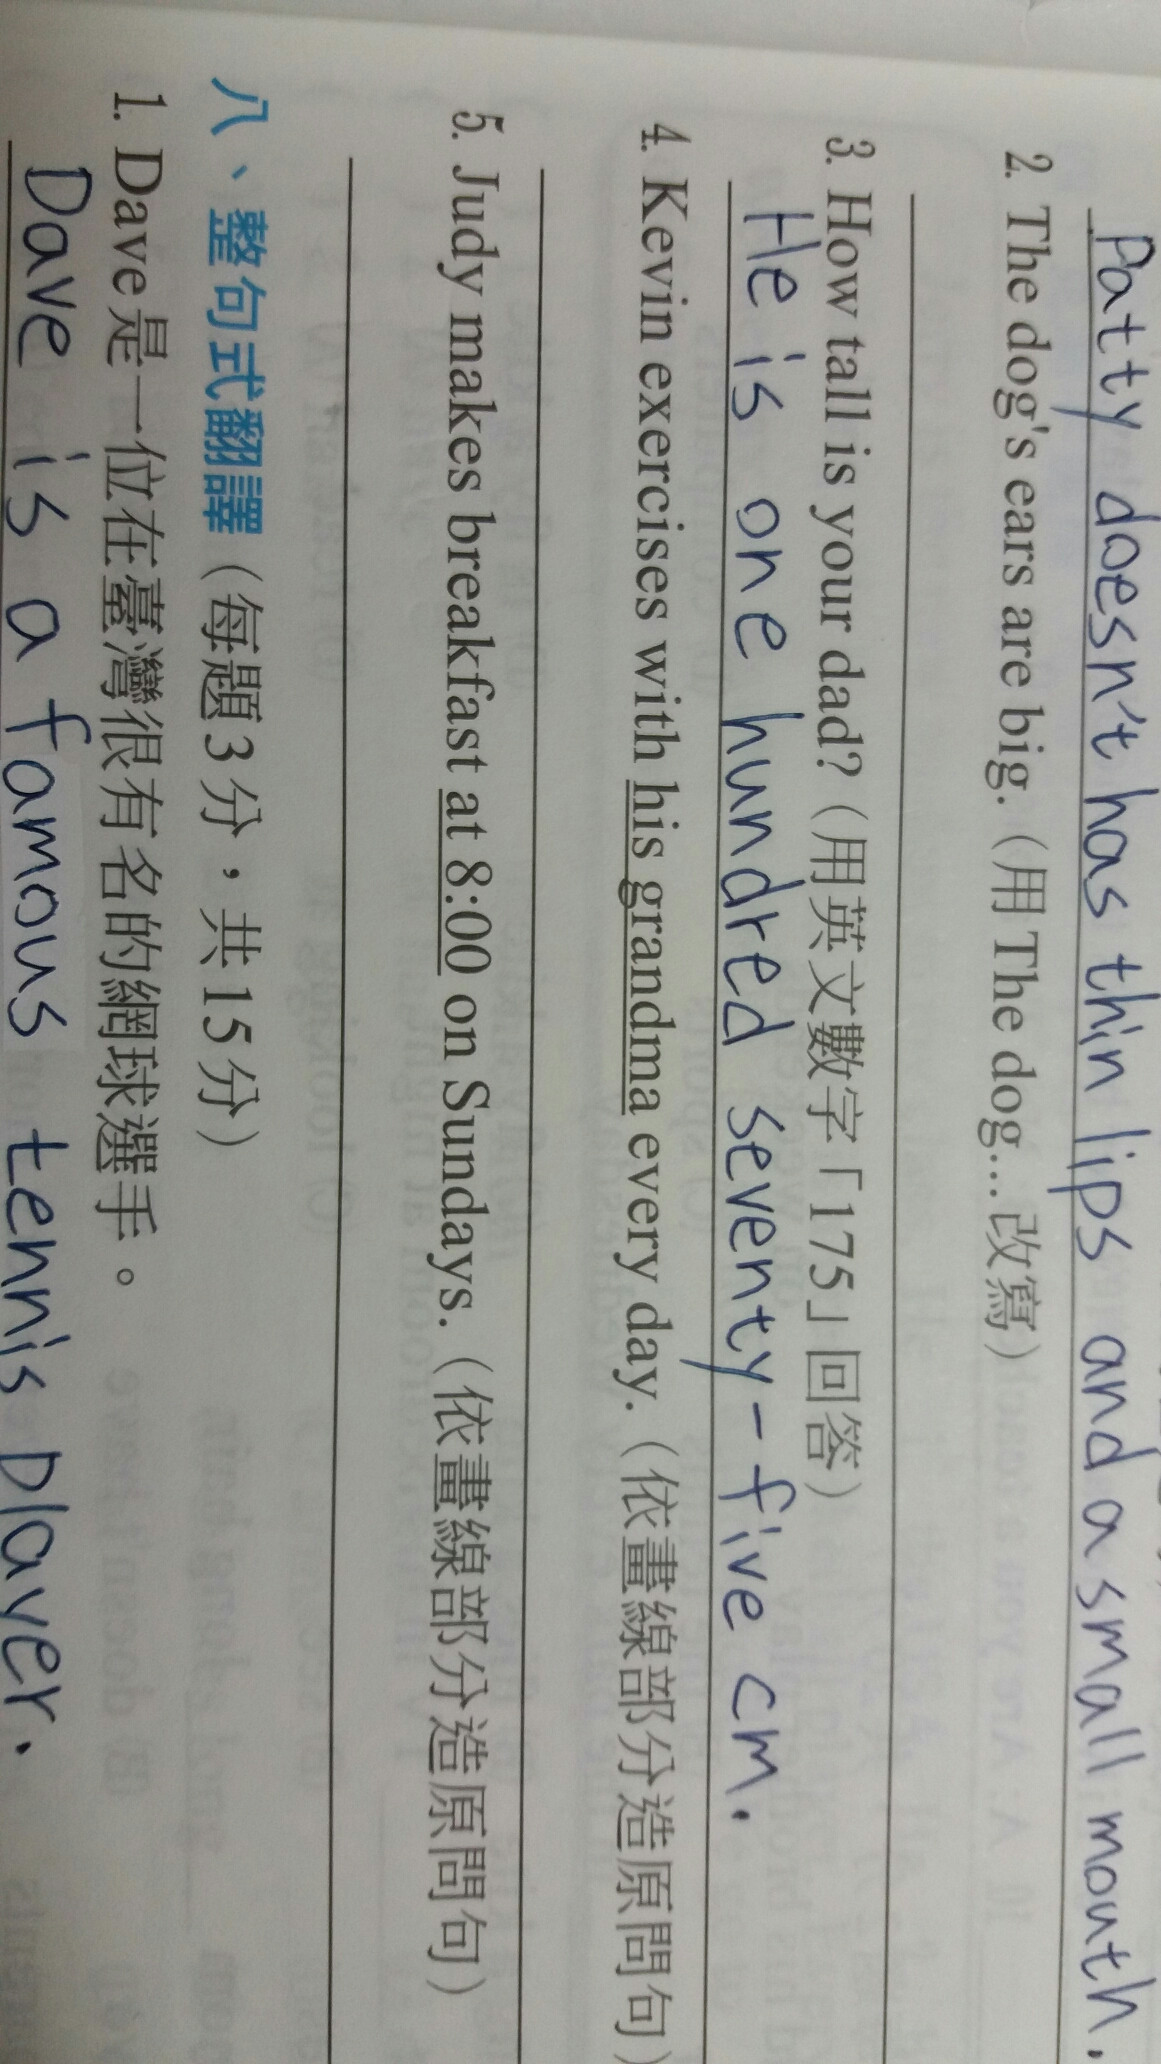 Patty doesn't has thin lips and a small mouth.
2. The dog's ears are big.（用 The dog…改寫）
3. How tall is your dad?（用英文數字「175」回答）
He is one hundred seventy-five cm.
4. Kevin exercises with his grandma every day.（依畫線部分造原問句）
5. Judy makes breakfast at 8:00 on Sundays.（依畫線部分造原問句）
八、整句式翻譯（每題3分，共15分）
1. Dave是一位在臺灣很有名的網球選手。
Dave is a famous tennis player.